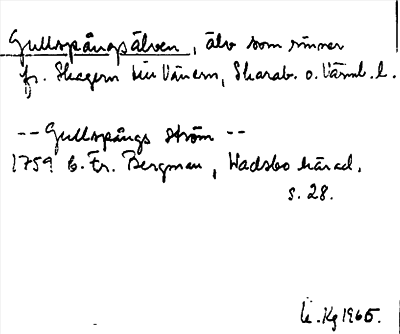 Gullspångsälven, älv som rinner
fr. Skagern till Vänern, Skarab. o. Värml. l.
-- Gullspångs ström --
1759 E. Fr. Bergman, Wadsbo härad,
s. 28.
Kg 1965.